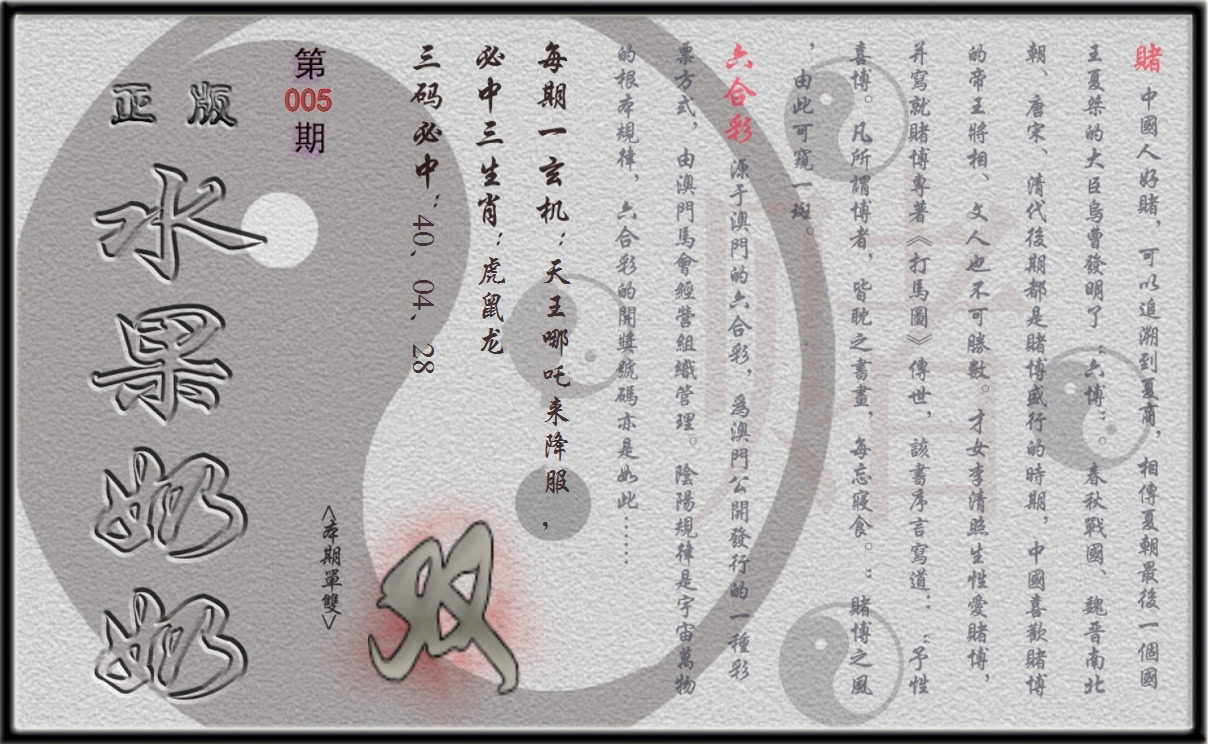 賭 中國人好賭，可以追溯到夏商，相傳夏朝最後一個國
王夏桀的大臣烏曹發明了“六博”。春秋戰國、魏晉南北
朝、唐宋、清代後期都是賭博盛行的時期，中國喜歡賭博
的帝王將相、文人也不可勝數。才女李清照生性愛賭博，
并寫就賭博專著《打馬圖》傳世，該書序言寫道：“予性
喜博。凡所謂博者，皆耽之書畫，每忘寢食。：賭博之風
，由此可窺一斑。
六合彩 源于澳門的六合彩，為澳門公開發行的一種彩
票方式，由澳門馬會經營組織管理。陰陽規律是宇宙萬物
的根本規律，六合彩的開獎號碼亦是如此……
每期一玄机：天王哪吒来降服，
必中三生肖：虎鼠龙
三码必中：40，04，28
双
<本期單雙>
第
005
期
正版
水果奶奶
赌